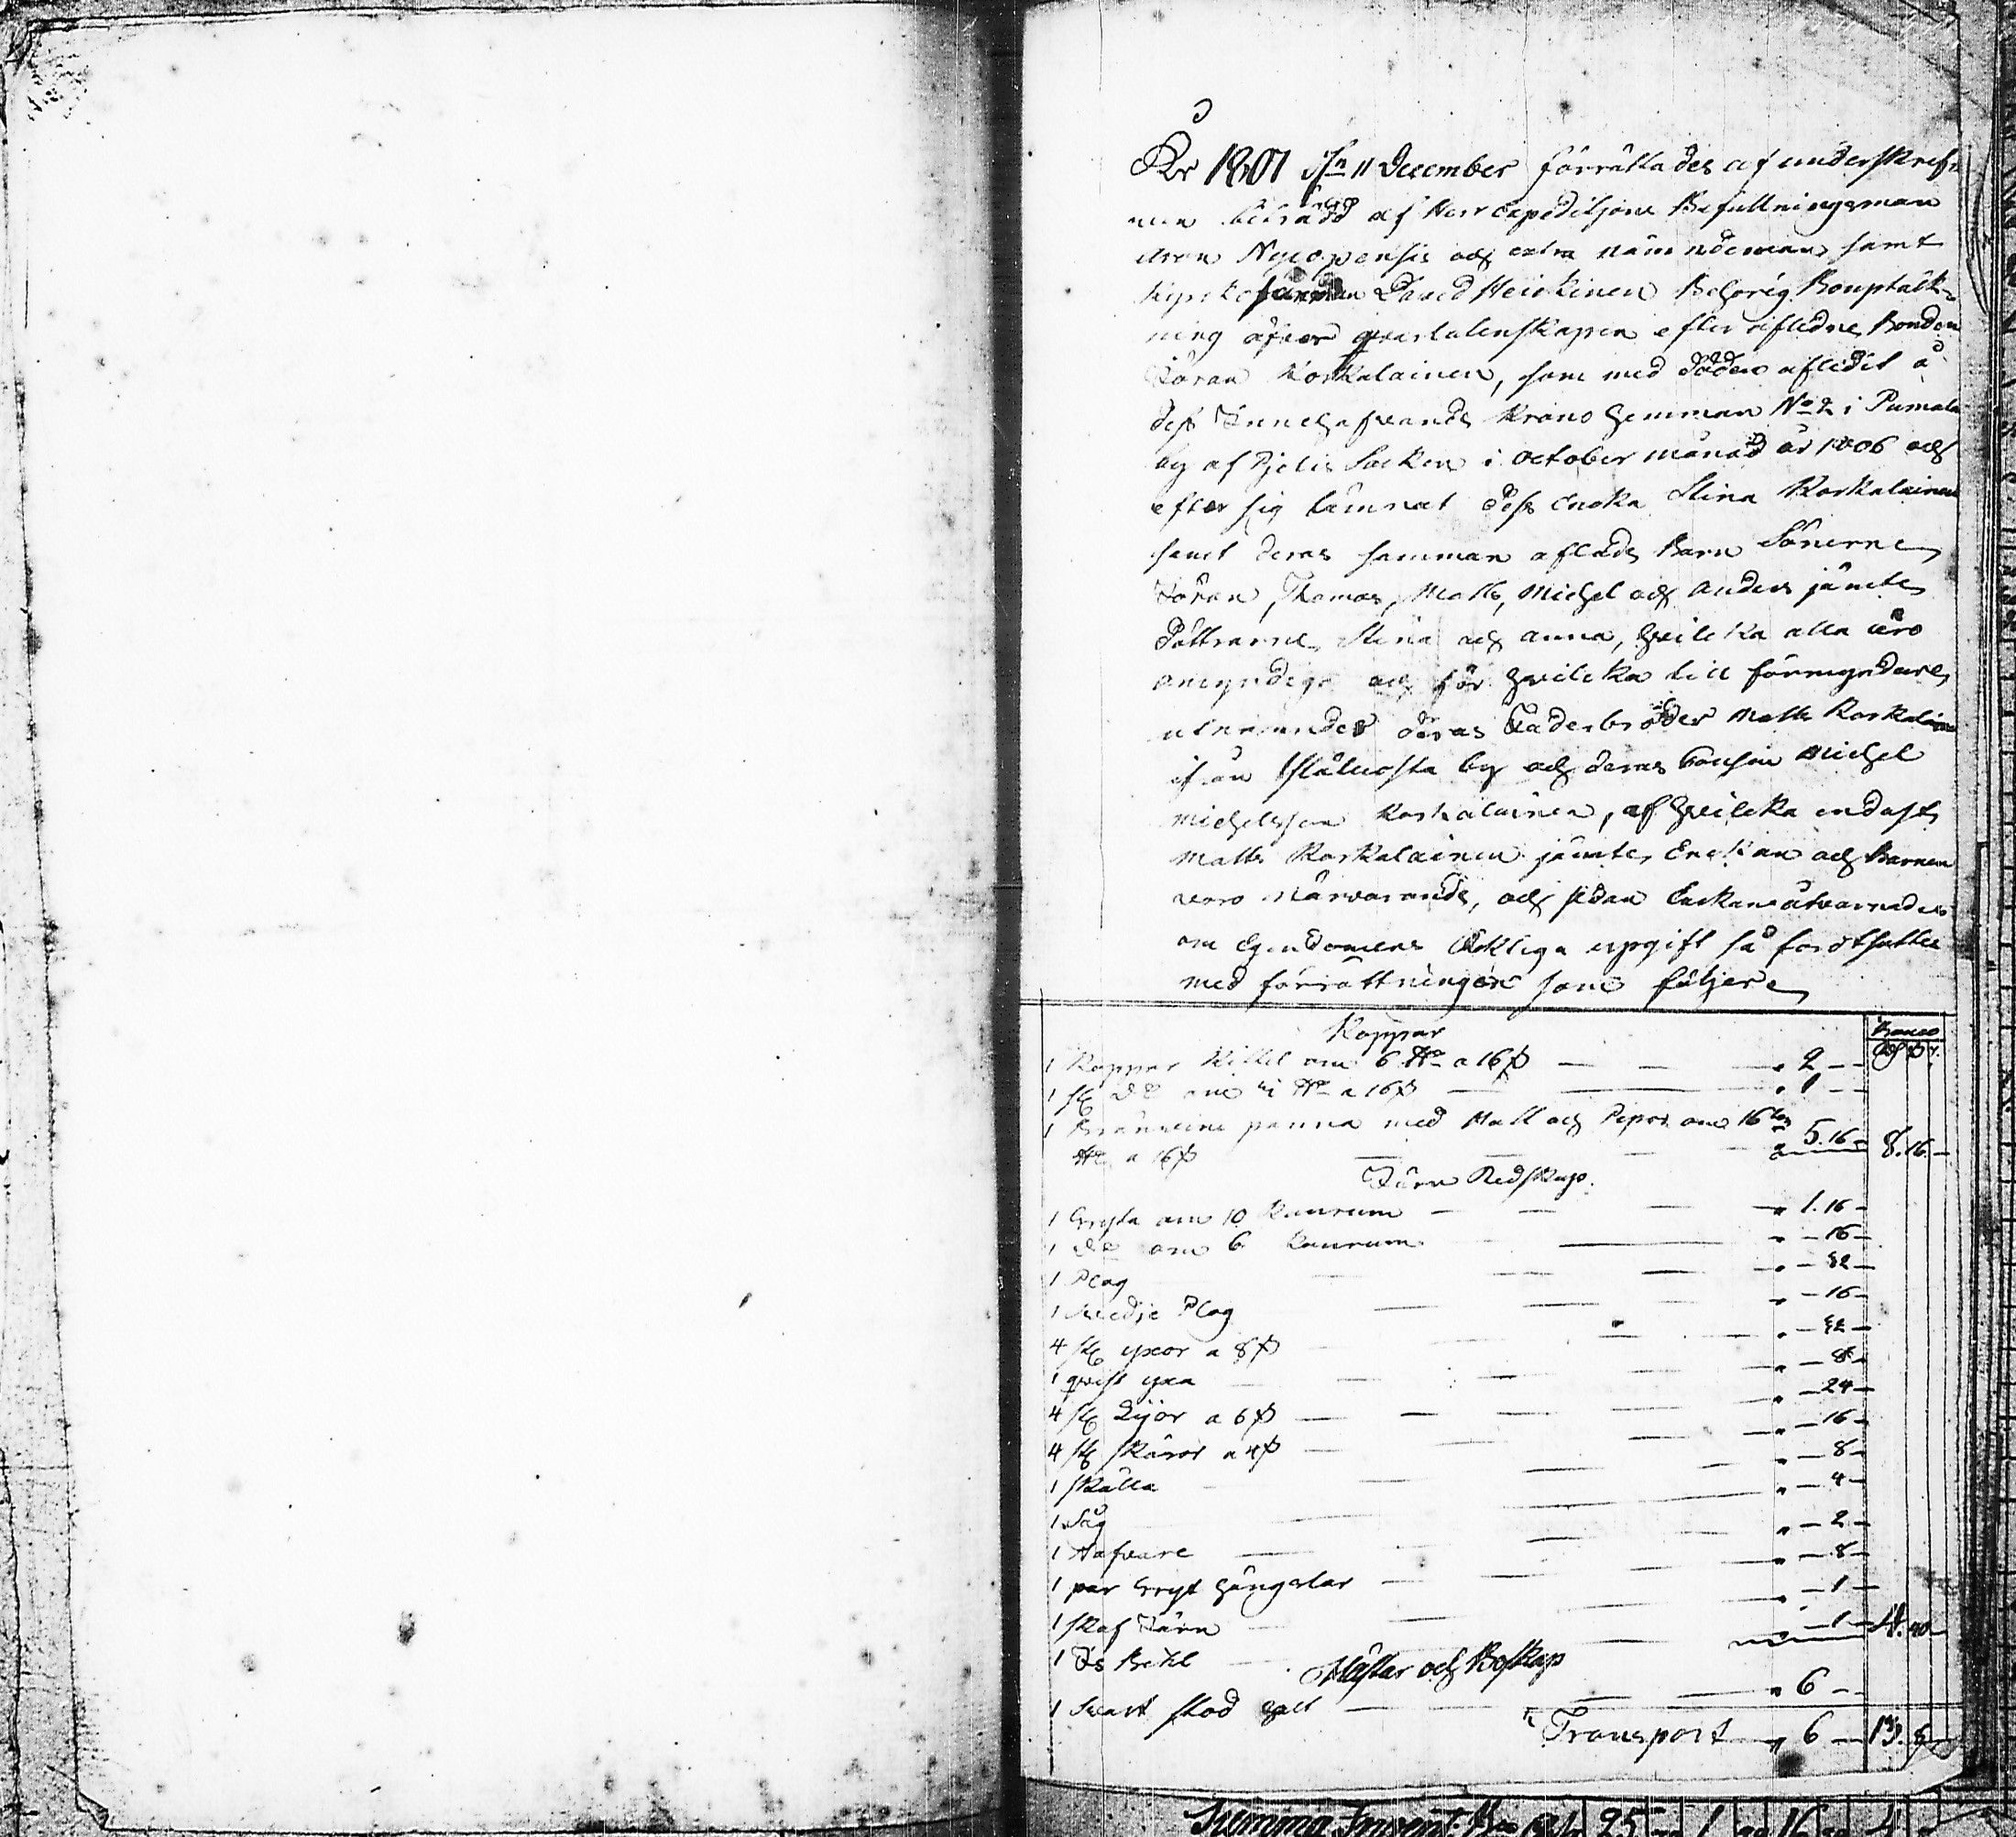 År 1807 d:n 11 December förrättades af underskref-
nen biträdd af Herr Expeditjons Befallningsman
Aron Nycopensis och extra nämndeman samt
David Heickinen Behörig Bouptäck-
ning öfver qvarlatenskapen efter afledne Bonden
Jöran Koskalainen, som med döden afledit å
dess Innehafvande Krono Hemman No 2 i Pumala
by af Pjelis Socken i October månad år 1806 och
efter sig lämnat dess Encka Stina Koskalainen
samt deras samman aflade Barn Sönerne
Jöran, Thomas, Matts, Michel och Anders jämte
Döttrarne Stina och Anna, hvilcka alla äro
omyndige och för hvilcka till förmyndare
utnämndes deras Faderbroder Matts Koskalainen
ifrån by och deras Cousin Michel
Michelsson Koskalainen, af hvilcka endast
Matts Koskalainen jämte Enckan och Barnen
voro närvarande, och sedan Enckan åtvarnades
om Egendomens Ricktiga uppgift så fortsattes
med förrättningen som följer
Koppar Banco
1 Koppar Kittel om 6 ℔ a 16 ß — — " 2 —
1 st D:o om 3 ℔ a 16 ß — " 1 —
1 Bränvins panna med Hatt och Pipor om 16
℔ a 16 ß — — — " 5.16 — 8.16 —
Järn Redskap.
1 Gryta om 10 Kannrum — — — " 1.16 —
1 D:o om 6 Kannrum — " — 16 —
1 Plog — — — " — 32 —
1 Svedje Plog — — — " — 16 —
4 st yxor a 8 ß — — " — 32 —
1 qvist yxa — — — " — 8 —
4 st Lijor a 6 ß — — — " — 24 —
4 st Skäror a 4 ß — — — " — 16 —
1 Skälla — — — " — 8 —
1 Såg — — " — 4 —
1 Nafvare — — " — 2 —
1 par Gryt Hängslar — — — " — 8 —
1 Skaf Järn — — — " — 1 —
1 Is Bihl — — " — 1 — 4.40 —
Hästar och Boskap
1 Svart stod — — — " 6 —
Transport — " 6 — 13. 8 —
Summa Invent: B:co Rd 25 1 16 4